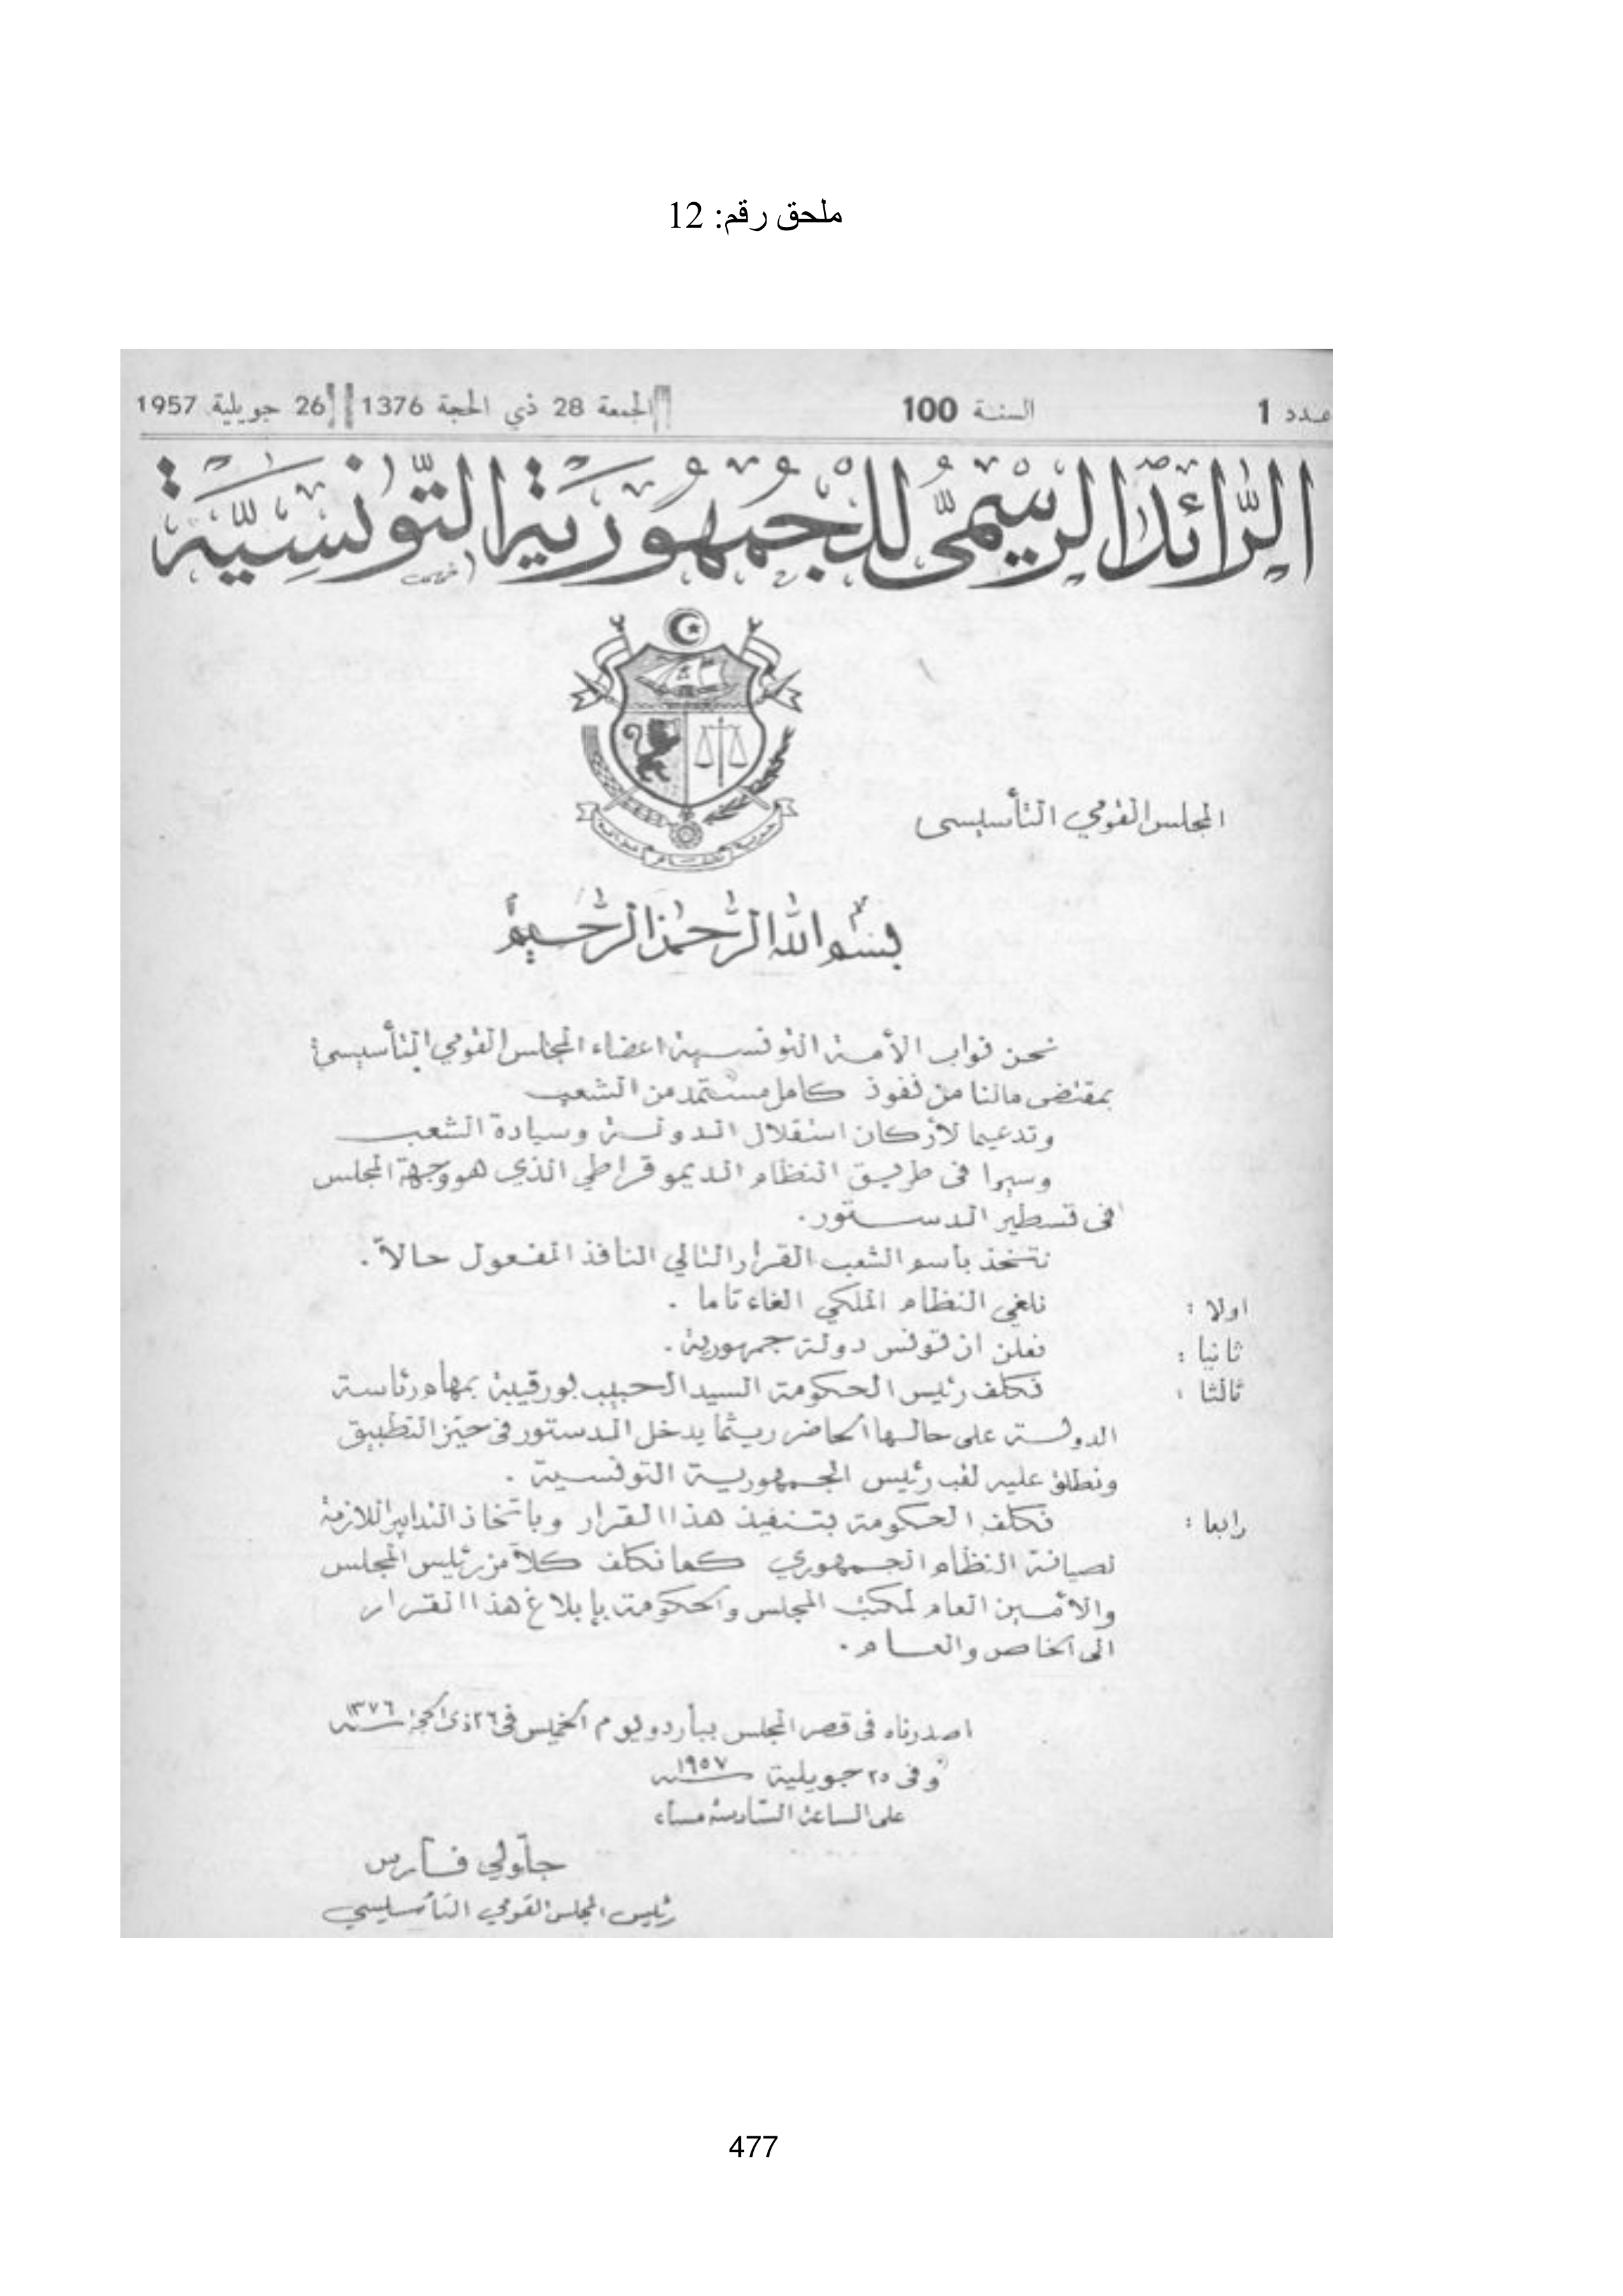 ملحق رقم: 12
عدد 1 السنة 100 الجمعة 28 ذي الحجة 1376 26 جويلية 1957
الرّائد الرّسْمِيّ للجُمْهُورِيَّةِ التّونِسِيَّة
المجلس القومي التأسيسي
بسم الله الرحمن الرحيم
نحن نواب الأمة التونسية اعضاء المجلس القومي التأسيسي؛
بمقتضى مالنا من نفوذ كامل مستمد من الشعب
وتدعيما لأركان استقلال الدولة وسيادة الشعب
وسيرا فى طريق النظام الديموقراطي الذي هو وجهة المجلس
فى تسطير الدستور.
نتخذ بأسم الشعب القرار التالي النافذ المفعول حالاً.
اولا : نلغي النظام الملكي الغاء تاما .
ثانيا : نعلن ان تونس دولة جمهورية .
ثالثا : نكلف رئيس الحكومة السيد الحبيب بورقيبة بمهام رئاسة
الدولة على حالها الحاضر ريثما يدخل الدستور فى حيز التطبيق
ونطلق عليه لقب رئيس الجمهورية التونسية .
رابعا : نكلف الحكومة بتنفيذ هذا القرار وباتخاذ التدابير اللازمة
لصيانة النظام الجمهوري كما نكلف كلاّ من رئيس المجلس
والأمين العام لمكتب المجلس والحكومة بإبلاغ هذا القرار
الى الخاص والعام.
اصدرناه فى قصر المجلس بباردو يوم الخميس فى ٢٦ ذى الحجة سنة ١٣٧٦
وفى ٢٥ جويلية سنة ١٩٥٧
على الساعة السّادسة مساء
جلّولي فارس
رئيس المجلس القومي التأسيسي
477